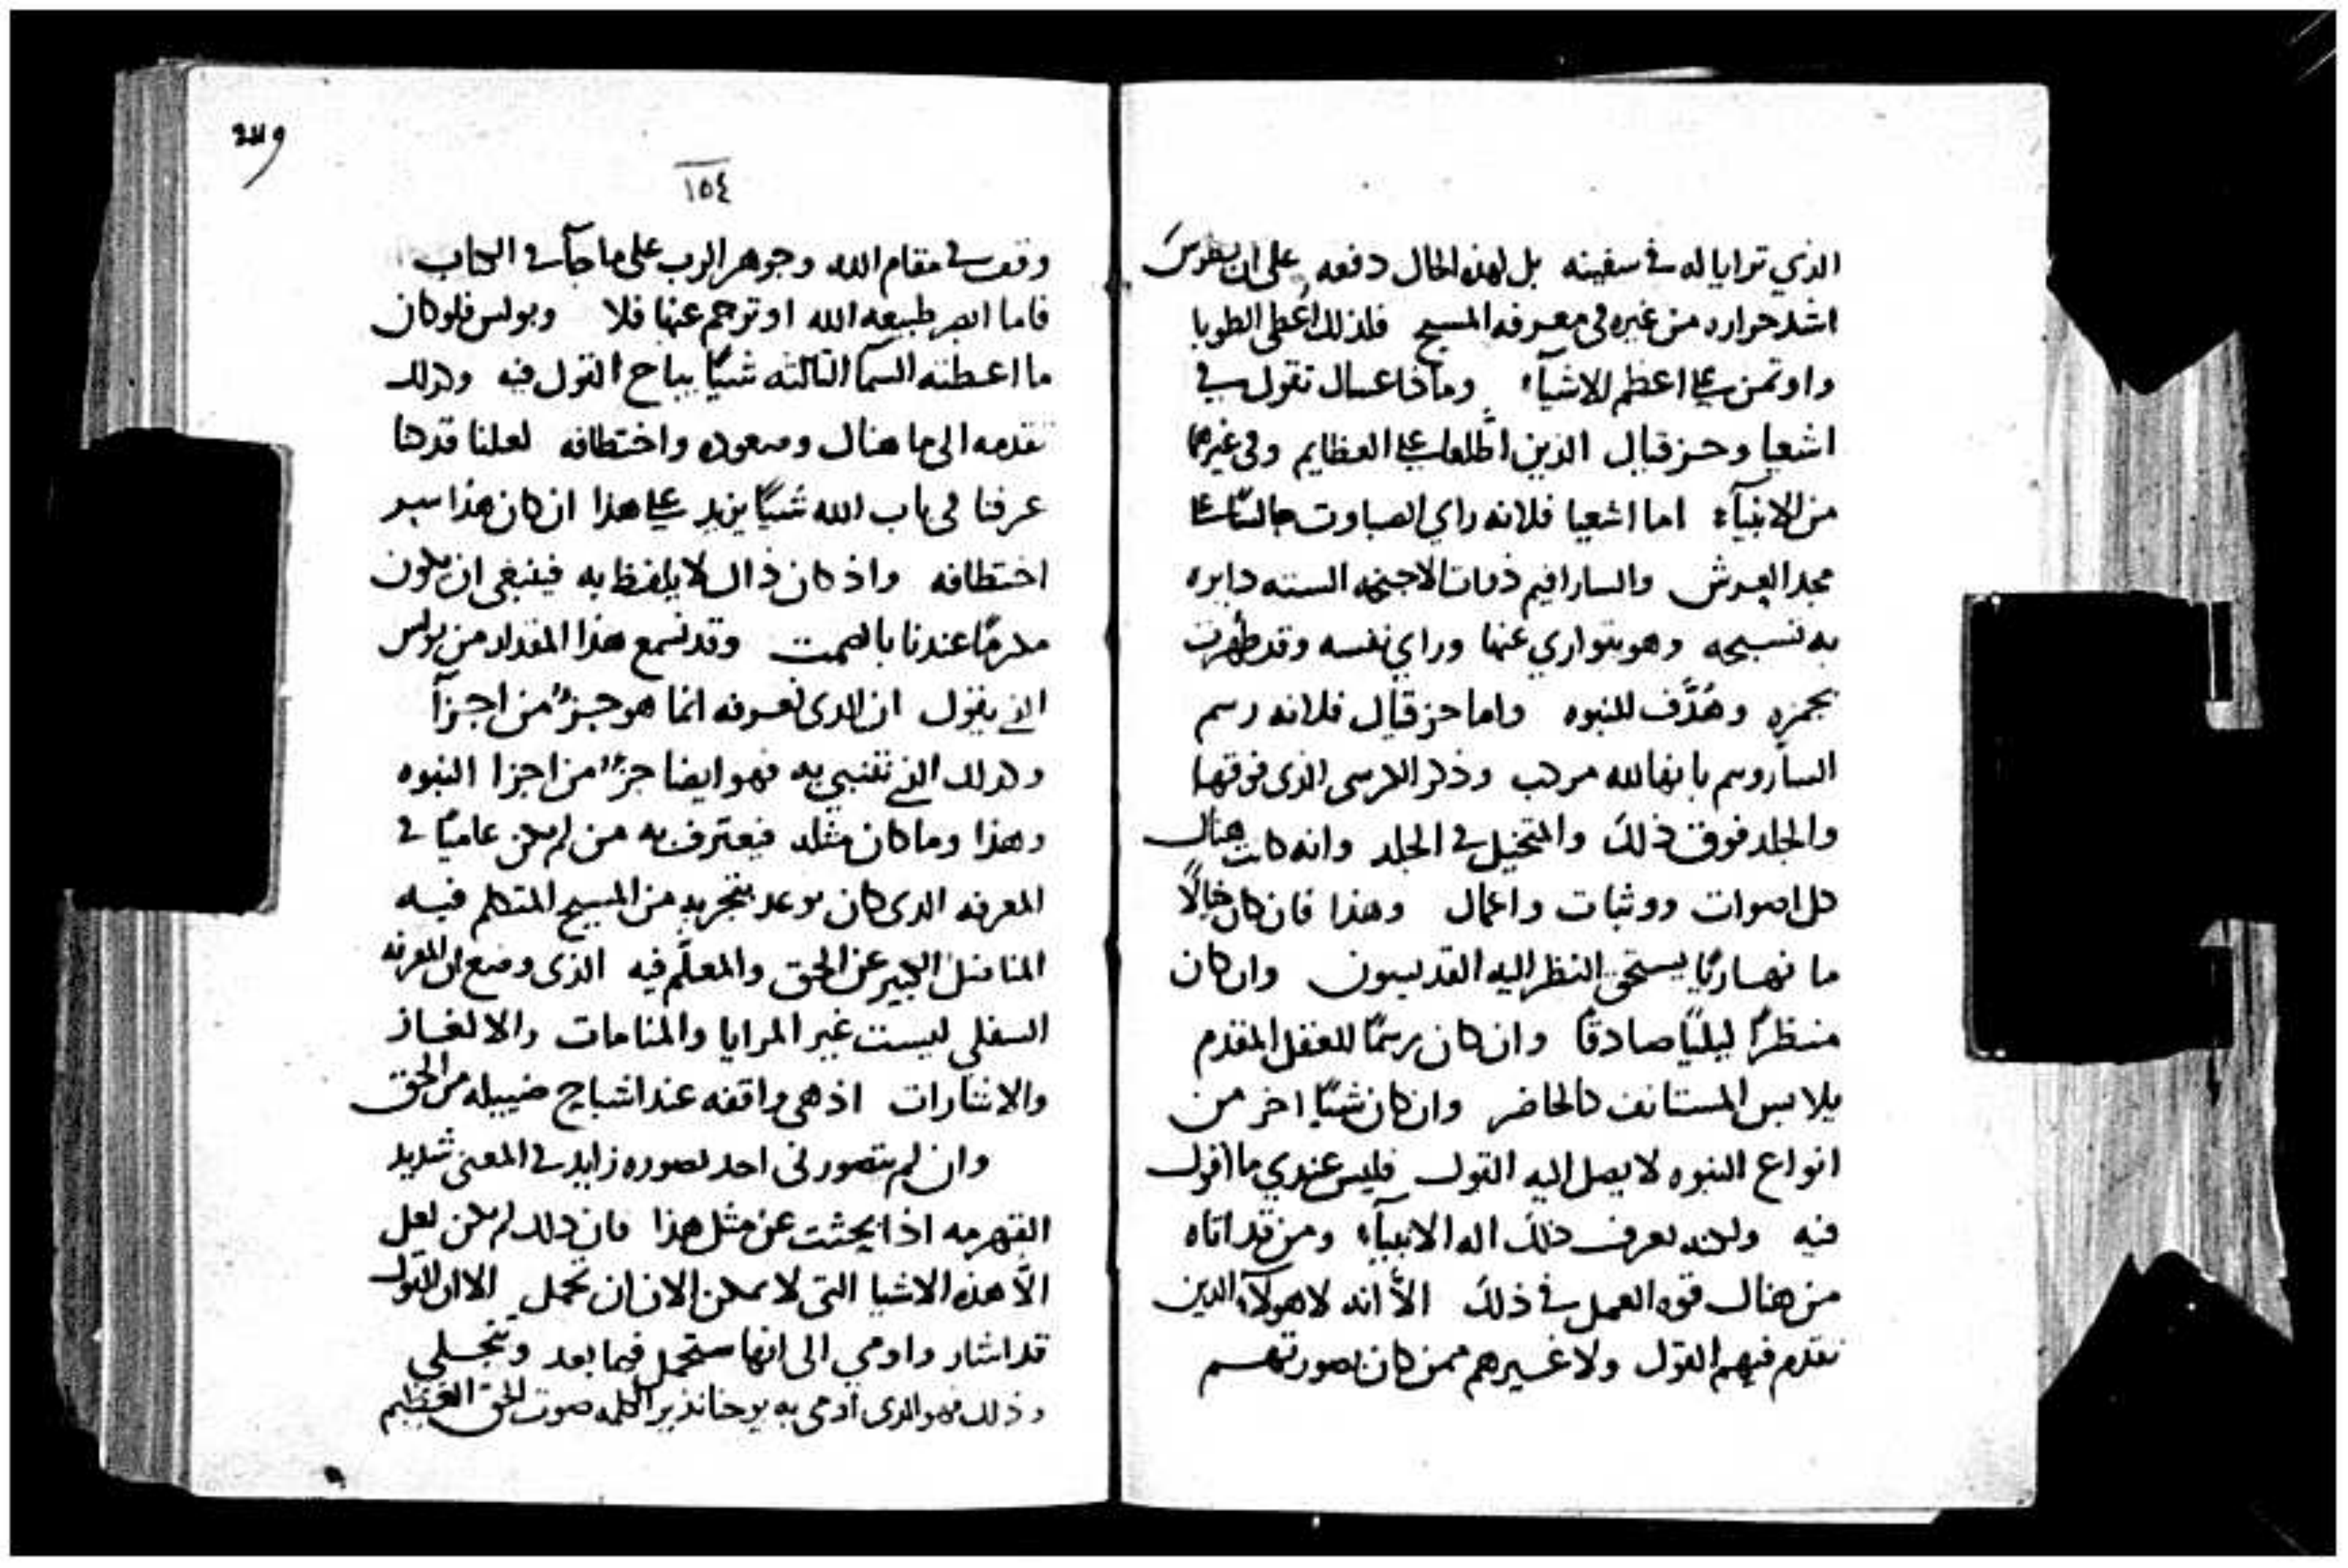 الذي ترايا له في سفينه بل لهذه الحال دفعه على ان بطرس
اشد حراره من غيره في معرفه المسيح فلذلك اعطى الطوبا
واوتمن على اعظم الاشيآء وماذا عساك تقول في
اشعيا وحزقيال الذين اطلعا على العظايم وفى غيرهما
من الانبيآء اما اشعيا فلانه راي الصباوت جالسًا على
مجد العرش والسارافيم ذوات الاجنحه السته دايره
به تسبحه وهو يتواري عنها وراي نفسه وقد طهرت
بجمره وهُدِّف للنبوه واما حزقيال فلانه رسم
الساروبيم بانها لله مركب وذكر الكرسى الذى فوقها
والجلد فوق ذلك والمتخيل في الجلد وانه كانت هناك
كل اصوات ووثبات واعمال وهذا فان كان خيالًا
ما نهاريًا يستحق النظر اليه القديسون وان كان
منظرًا ليليًا صادقًا وان كان رسمًا للعقل المقدم
يلابس المستانف كالحاضر وان كان شيًا اخر من
انواع النبوه لا يصل اليه القول فليس عندي ما اقول
فيه ولكنه يعرف ذلك اله الانبيآء ومن قد اتاه
من هناك قوه العمل في ذلك الّا انه لا هولآء الذين
تقدم فيهم القول ولا غيرهم ممن كان بصورتهم
٢٤٩
١٥٤
وقف في مقام الله وجوهر الرب على ما جآ في الكتاب
فاما ابصر طبيعه الله او ترجم عنها فلا وبولس فلو كان
ما اعطته السمآ الثالثه شيًا يباح القول فيه وكذلك
تقدمه الى ما هناك وصعوده واختطافه لعلنا قد كنا
عرفنا فى باب الله شيًا يزيد على هذا ان كان هذا سر
اختطافه واذ كان ذاك لا يلفظ به فينبغى ان يكون
مكرمًا عندنا بالصمت وقد نسمع هذا المقدار من بولس
الذي يقول ان الذى نعرفه انما هو جزء من اجزآ
وكذلك الذي نتنبي به فهو ايضا جزء من اجزا النبوه
وهذا وما كان مثله فيعترف به من لم يكن عاميًا في
المعرفه الذى كان يوعد بتجربه من المسيح المتكلم فيه
المناضل الكبير عن الحق والمعلّم فيه الذى وضع ان المعرفه
السفلي ليست غير المرايا والمنامات والالغاز
والاشارات اذ هى واقفه عند اشباح ضييله من الحق
وان لم يتصورنى احد بصوره زايد في المعنى شديد
القهرمه اذا بحثت عن مثل هذا فان ذلك لم يكن لعل
الّا هذه الاشيا التى لا يمكن الان ان تحمل الا ان القول
قد اشار واومي الى انها ستحمل فيما بعد وتتجلي
وذلك فهو الذى اومى به يوحنا نذير الكلمه صوت الحق العظيم